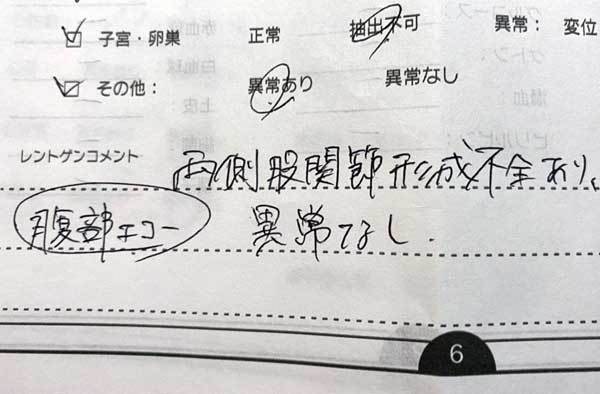 子宮・卵巣 正常 抽出不可 異常： 変位
その他： 異常あり 異常なし
レントゲンコメント 両側股関節形成不全あり、
腹部エコー 異常なし．
6